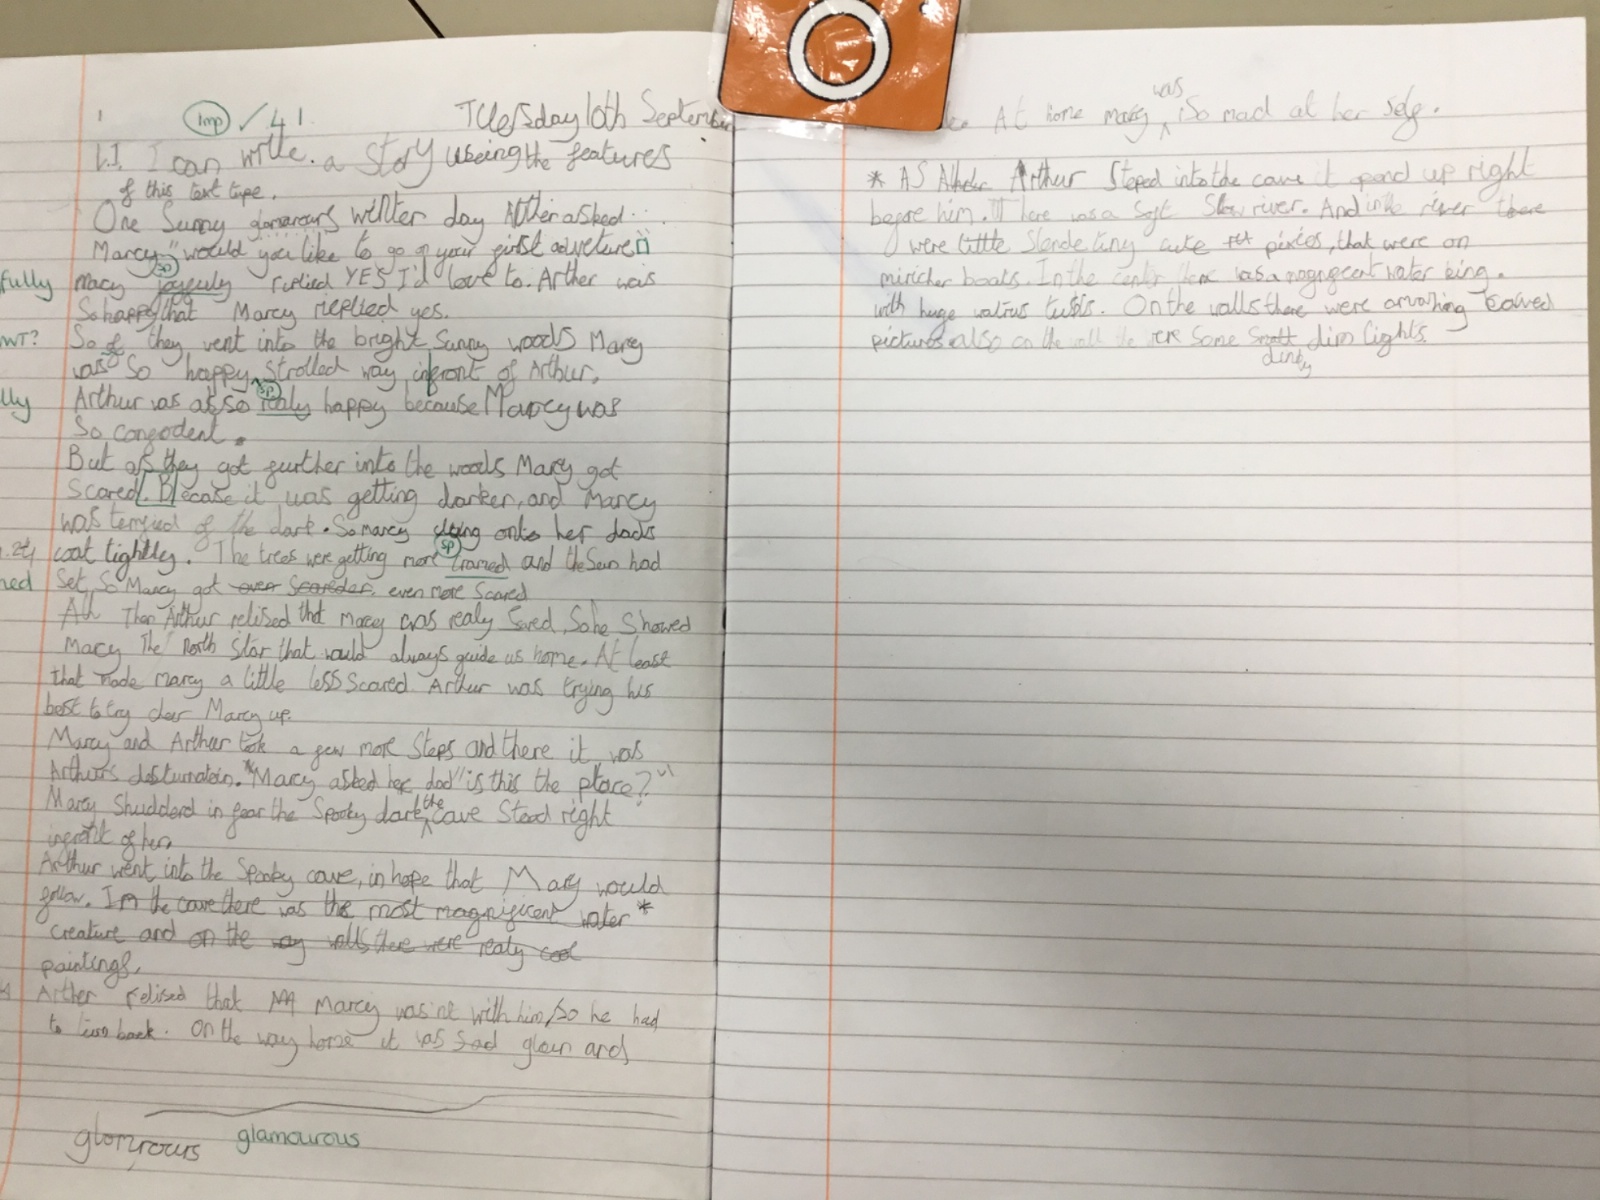 1
Imp ✓ 41
Tuesday 10th September
L.I. I can write. a story useing the features
of this text type.
One Sunny glamarours winter day Arther asked...
Marcy "would you like to go on your first advetures"
sp
fully Marcy joyeuly replied YES I'd love to. Arther was
So happy that Marcy replied yes.
WT? So of they went into the bright Sunny woods Marcy
was So happy, strolled way infront of Arthur.
sp
lly Arthur was also realy happy because Marcy was
So congodent.
But as they got further into the woods Marcy got
scared. Because it was getting darker, and Marcy
was terrified of the dark. So marcy clung onto her dads
sp
coat tightley. The trees were getting more and the sun had
Set, So Marcy got over Scareder. even more Scared
Then Arthur relised that marcy was realy Scred. So he showed
Marcy The North Star that would always guide us home. At least
that made marcy a little less scared. Arthur was trying his
best to try cher Marcy up.
Marcy and Arthur tok a few more Steps and there it was
Arthurs "Marcy asked her dad" is this the place?"
Marcy Shudderd in fear the Spooky dark, the cave Stood right
infront of her.
Arthur went into the Spooky cave, in hope that Marcy would
follow. In the cave there was the most magnificent water *
creature and on the way walls there were realy cool
paintings.
Arther relised that Marcy was'nt with him, so he had
to turn back. On the way home it was sad and
glomrours glamourous
At home marcy was So mad at her self.
* AS Arthur Steped into the cave it opend up right
before him. There was a Soft Slow river. And in the river there
were little Slende tiny cute pixies, that were on
boats. In the was a water king.
with huge walrus tusks. On the walls there were amazing carved
pictures also on the wall there were Some small dim lights.